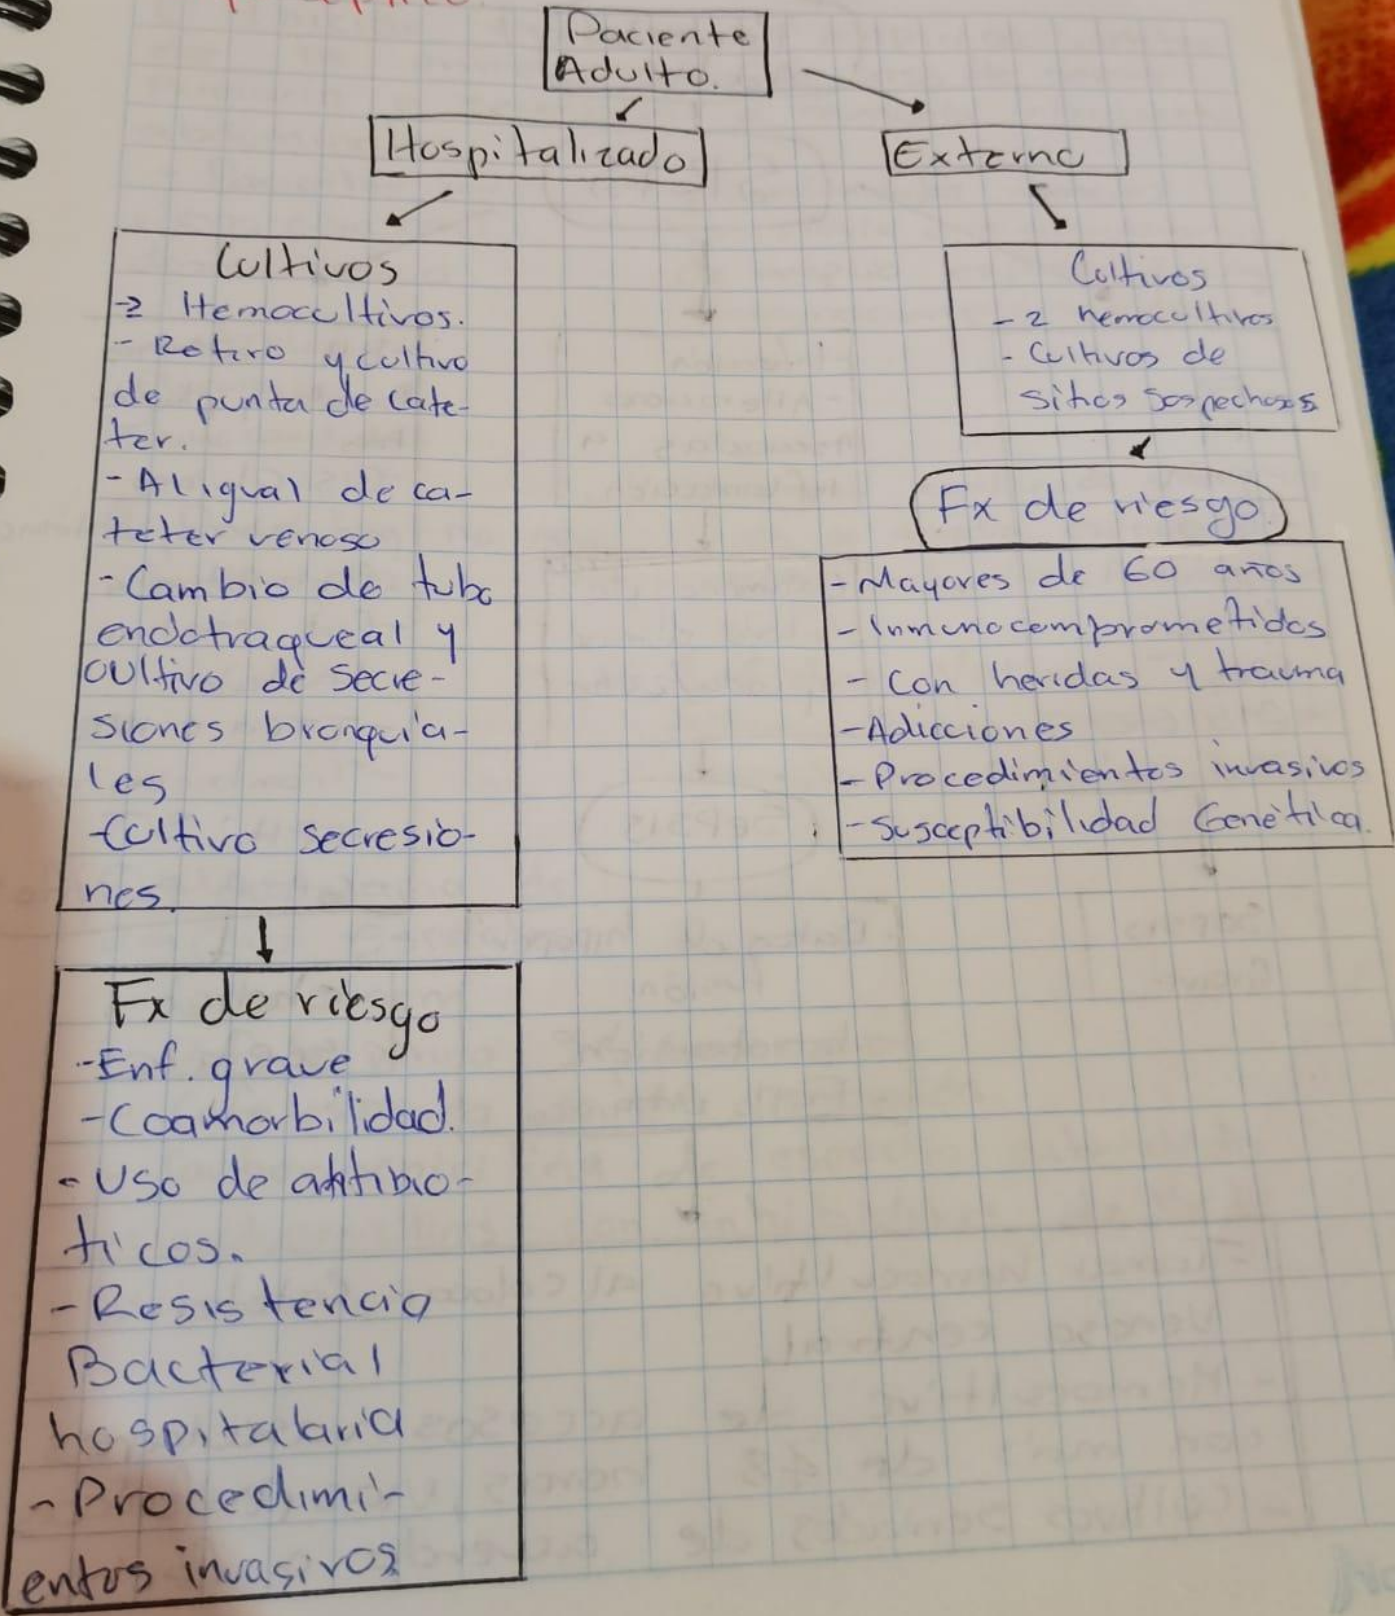 Paciente
Adulto.
Hospitalizado
Externo
Cultivos
-2 Hemocultivos.
- Retiro y cultivo
de punta de cate-
ter.
- Al igual de ca-
teter venoso
- Cambio de tubo
endotraqueal y
cultivo de secre-
siones bronquia-
les
-Cultivo secresio-
nes.
Fx de riesgo
-Enf. grave
-Coamorbilidad.
- Uso de antibio-
ticos.
- Resistencia
Bacterial
hospitalaria
- Procedimi-
entos invasivos
Cultivos
- 2 hemocultivos
- Cultivos de
sitios sospechosos
Fx de riesgo
- Mayores de 60 años
- Inmunocomprometidos
- Con heridas y trauma
- Adicciones
- Procedimientos invasivos
- Susceptibilidad Genética.